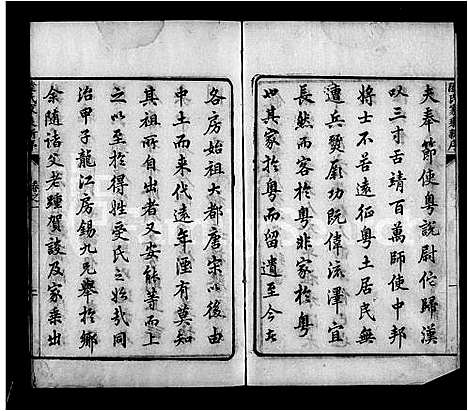 夫奉節使粵說尉佗歸漢
以三寸舌靖百萬師使中邦
將士不苦遠征粵土居民無
遭兵燹厥功既偉流澤宜
長然而客於粵非家於粵
也其家於粵而留遺至今者
各房始祖大都唐宋以後由
中土而來代遠年湮有莫知
其祖所自出者又安能等而上
之以至於得姓受氏之始哉同
治甲子龍江房錫九兄舉於鄉
余隨諸父老踵賀談及家乘出